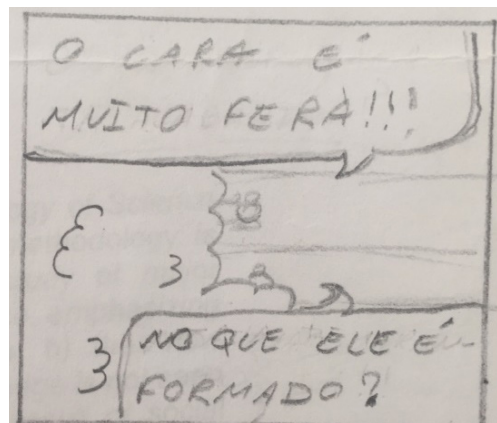 O CARA É
MUITO FERA!!!
NO QUE ELE É
FORMADO?